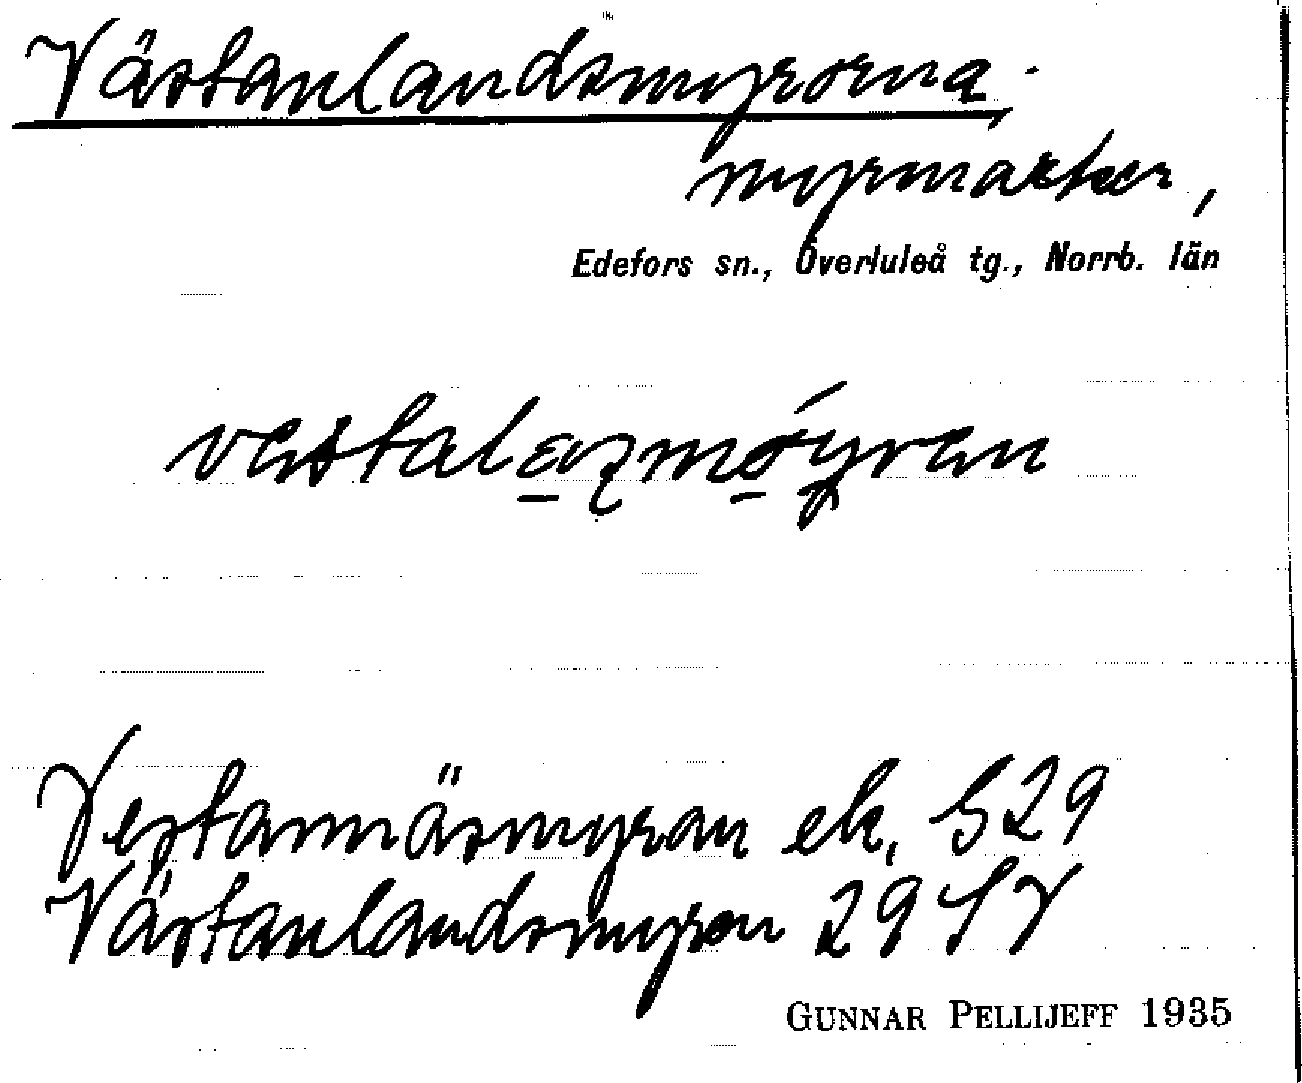 Västanlandsmyrorna.
myrmarker,
Edefors sn., Överluleå tg., Norrb. län
Vestannäsmyran ek. S29
Västanlandsmyran 29 SV
GUNNAR PELLIJEFF 1935